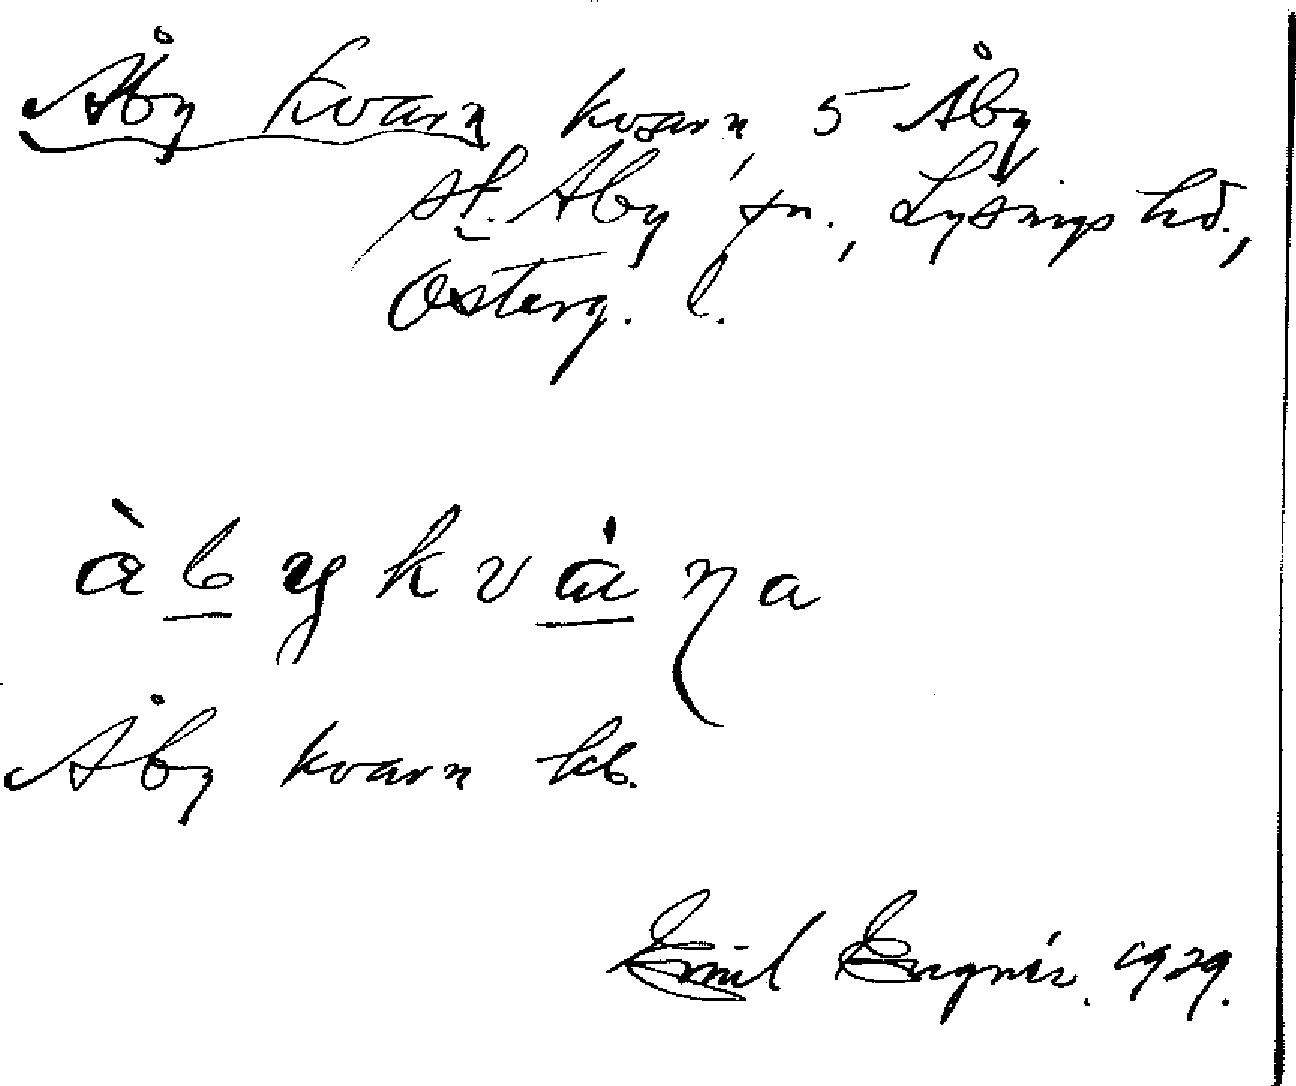 Åby kvarn kvarn, 5 Åby
st. Åby sn., Lysings hd.,
Österg. l.
àbykvána
Åby kvarn kb.
Emil Engnér. 1929.